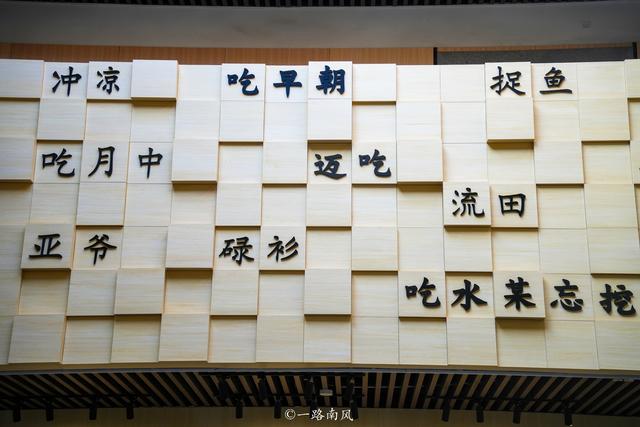 冲凉 吃早朝 捉鱼
吃月中 迈吃
流田
亚爷 碌衫
吃水某忘挖
©一路南风